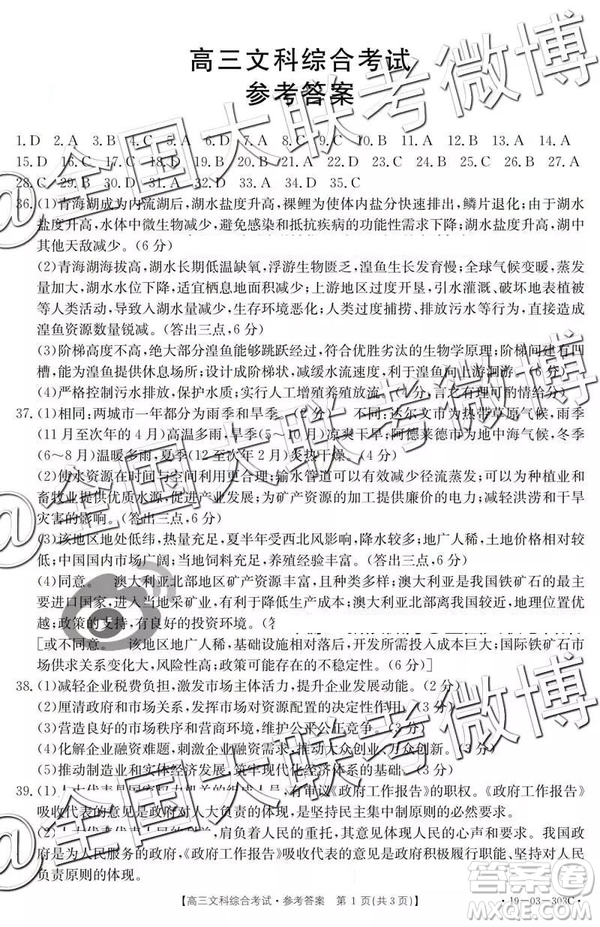 高三文科综合考试
参考答案
1.D 2.A 3.B 4.C
11.D 12.A 13.A 14.A
15.D 16.C 17.B
20.B 21.A 22.D
27.A
28.C 29.B 30.D 31.D 32.A 33.D 34.D 35.C
36.(1)青海湖成为内流湖后,湖水盐度升高,裸鲤为使体内盐分快速排出,鳞片退化;由于湖水
盐度升高,水体中微生物减少,避免感染和抵抗疾病的功能性需求下降;湖中
其他天敌减少。(6分)
(2)青海湖海拔高,湖水长期低温缺氧,浮游生物贫乏,湟鱼生长发育慢;全球气候变暖,蒸发
量加大,湖水水位下降,适宜栖息地面积减小;上游地区过度开垦、引水灌溉、破坏地表植被
等人类活动,导致入湖水量减小,生存环境恶化;人类过度捕捞
湟鱼资源数量锐减。(答出三点,6分)
(3)阶梯高度不高,绝大部分湟鱼能够跳跃经过,符合优胜劣汰的生物学原理;
鱼类提供休息场所;
减缓水流流速,利于湟鱼向上游洄游。(6分)
(4)严格控制污水排放,保护水质;
实行人工增殖养殖放流。(言之有理可酌情给分)
37.(1)相同:两城市一年都分为雨季和旱季。(2分)
不同:达尔文市为热带草原气候,雨季
(11月至次年的4月)高温多雨,旱季(5~10月)
;阿德莱德市为地中海气候,冬季
(6~8月)温暖多雨,夏季(12至次年2月)炎热干燥。(4分)
(2)使水资源在时间与空间利用更合理;输水管道可以有效减少径流蒸发;可以为种植业和
畜牧业提供优质水源,促进产业发展;为矿产资源的加工提供廉价的电力;减轻洪涝和干旱
灾害的影响。(答出三点,6分)
(3)该地区地处低纬,热量充足,夏半年受西北风影响,降水多,水热充足;地广人稀,土地租金
低;中国国内市场广阔;当地水源充足,养殖经验丰富。(答出三点,6分)
(4)同意。澳大利亚北部地区矿产资源丰富,且距离我国较近;澳大利亚是我国铁矿石的最主要
的进口国家,进入当地采矿业,有利于降低生产成本;澳大利亚北部离
地理位置优
越;政策的支持,有良好的投资环境。
[或不同意。该地区地广人稀,基础设施相对落后,开发所需要的投入成本巨大;国际铁矿石市
场供求关系变化大,风险性高;政策可能存在不稳定性。(6分)]
38.(1)减轻企业税费负担,激发市场主体活力,提升企业发展动能。(2分)
(2)厘清政府和市场关系,
(3)营造良好的市场环境和营商环境,维护公平公正竞争。(3分)
(4)化解企业融资难题,刺激企业融资动能,推动大众创业、万众创新。(3分)
(5)推动制造业和实体经济发展,筑牢现代化经济体系的基础。(3分)
39.(1)人大代表是国家权力机关的组成人员,有审议《政府工作报告》的职权。《政府工作报告》
吸收代表的意见是政府对人大负责的体现,是坚持民主集中制原则的必然要求。
(2)人大代表
肩负着人民的重托,其意见充分反映了人民的意愿和要求。我国政
府是为人民服务的政府,《政府工作报告》吸收代表的意见是政府积极履行职责、对人民
负责原则的体现。
【高三文科综合考试·参考答案 第1页(共3页)】
·19-03-303C·
@全国大联考微博
@全国大联考微博
@全国大联考微博
答案圈
MXQE.COM